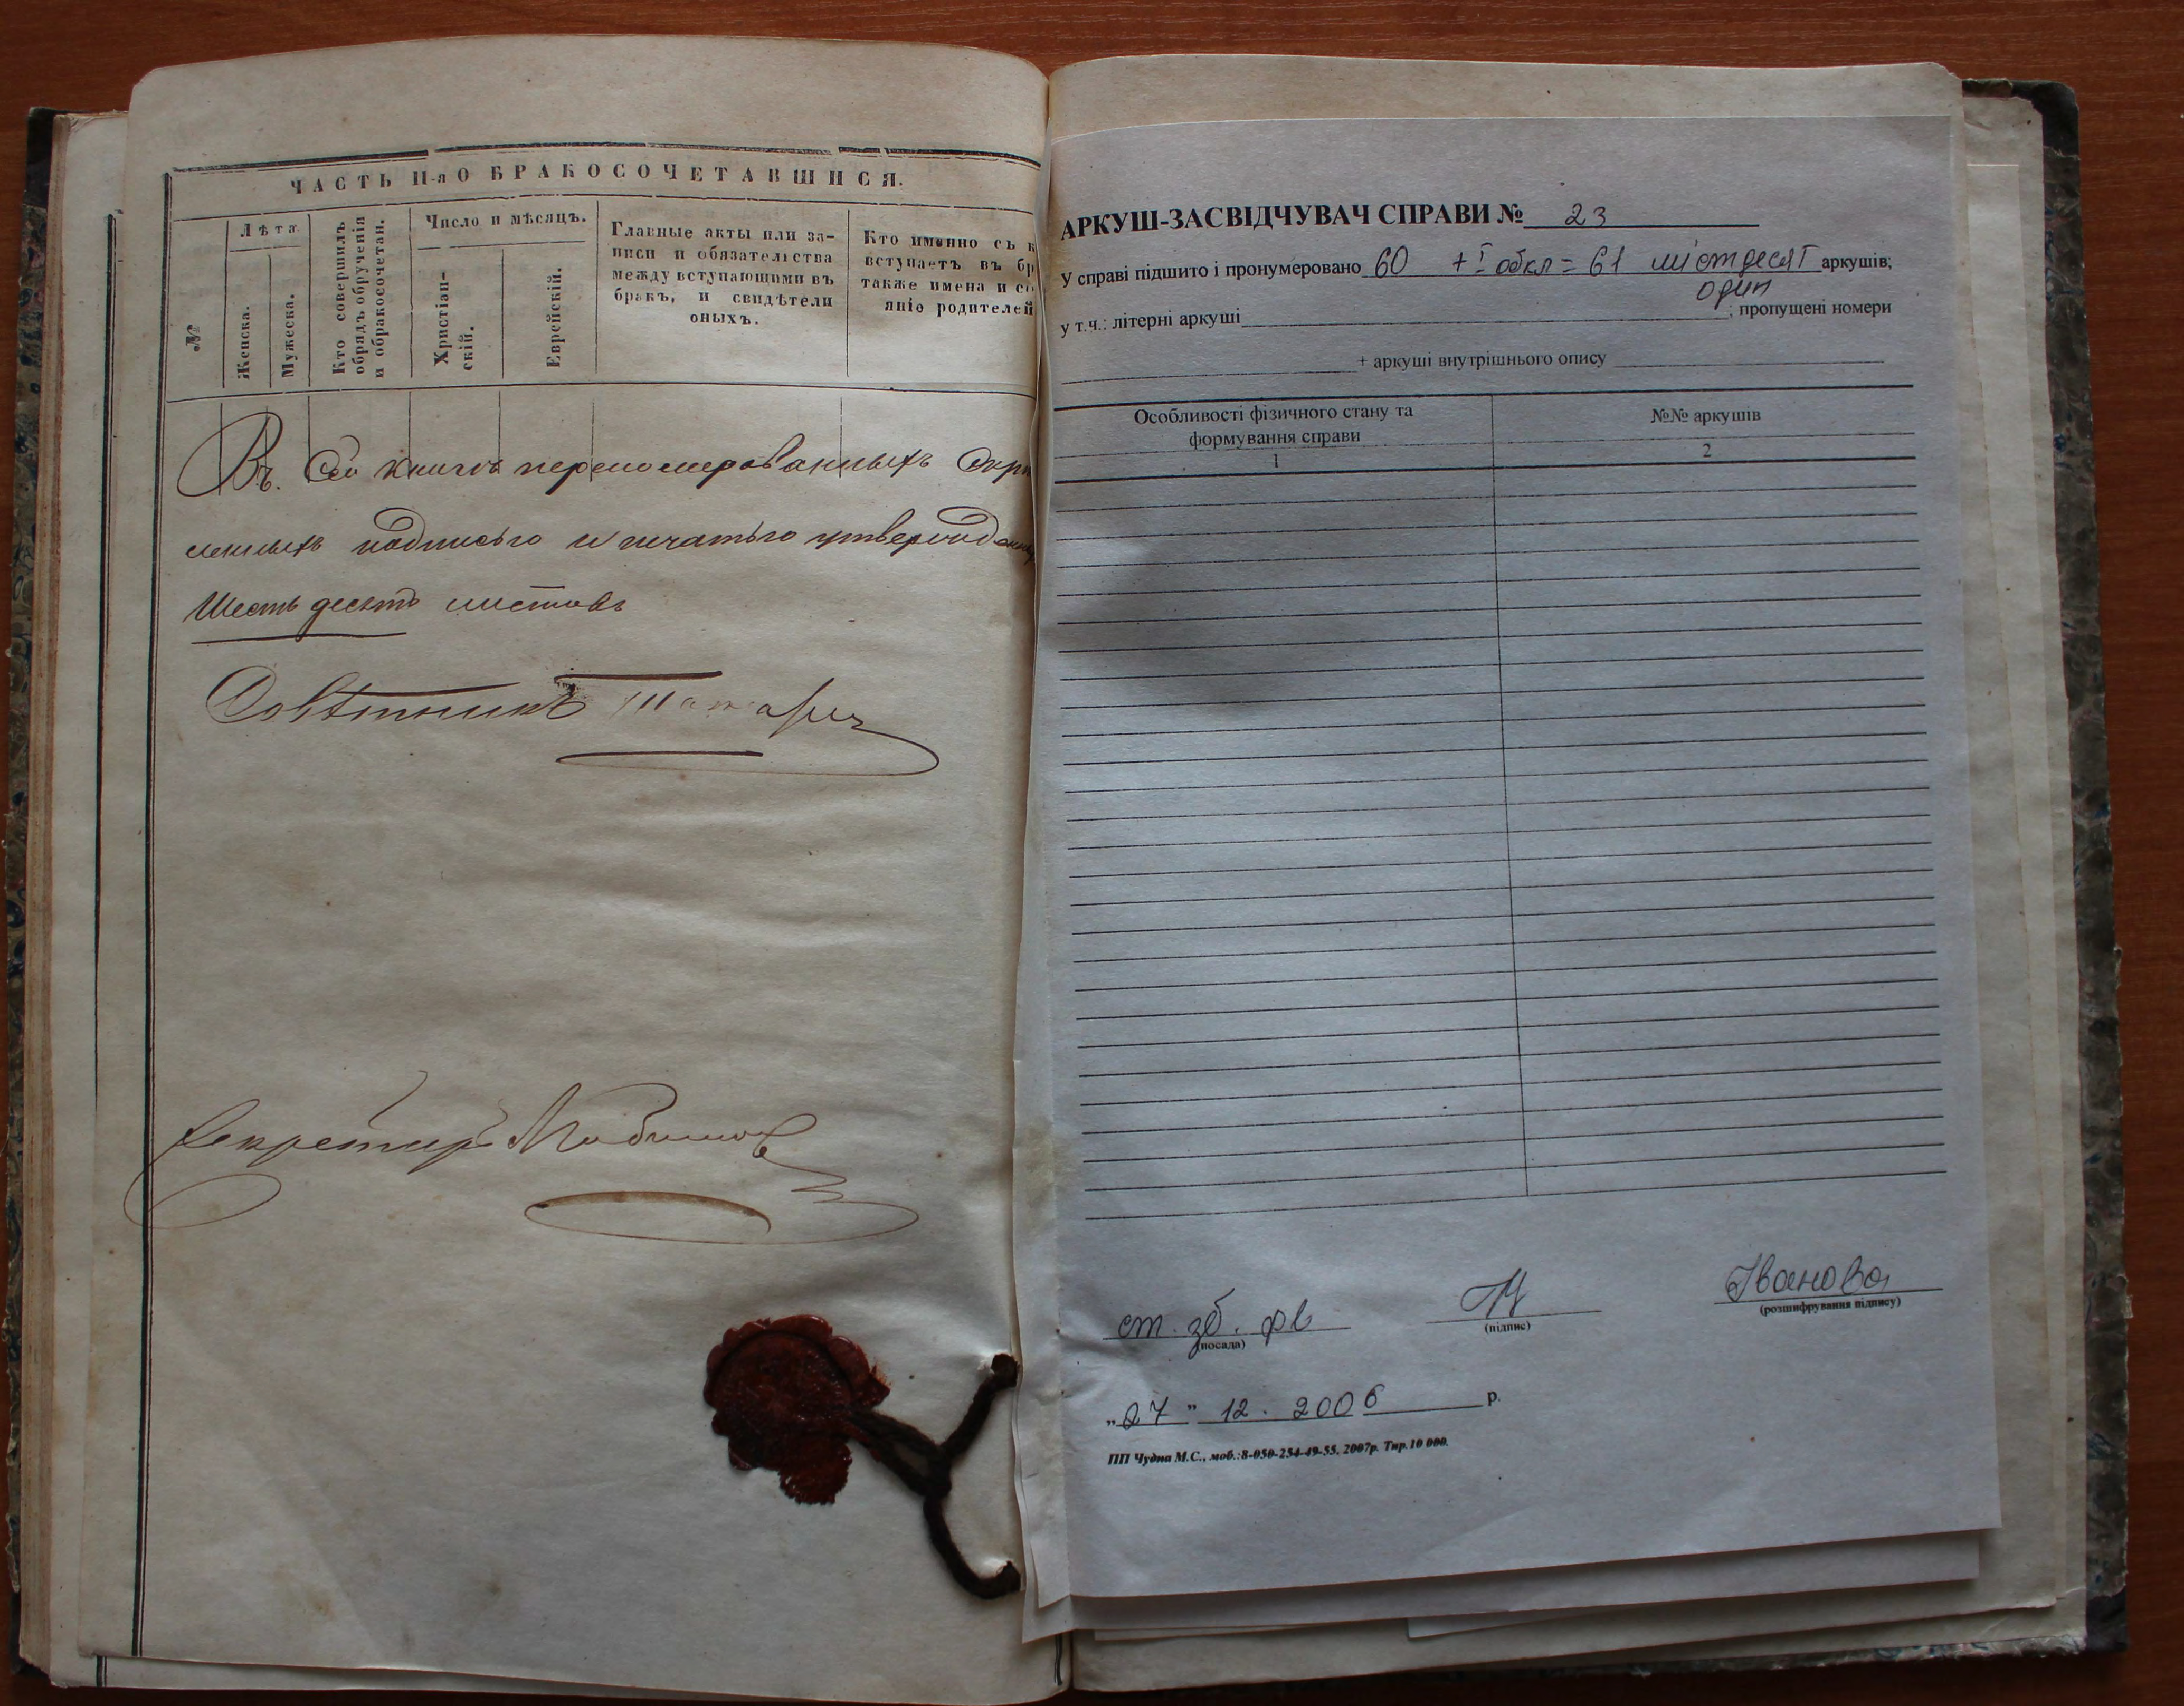 ЧАСТЬ II-я О БРАКОСОЧЕТАВШИСЯ.
№
Лѣта
Женска.
Мужеска.
Кто совершилъ
обрядъ обрученія
и обракосочетан.
Число и мѣсяцъ.
Христіан-
скій.
Еврейскій.
Главные акты или за-
писи и обязательства
между вступающими въ
бракъ, и свидѣтели
оныхъ.
Кто именно съ к
вступаетъ въ бр
также имена и со
яніе родителей
Въ сей книгѣ перенумерованныхъ
подписью и печатью
Шесть десятъ листовъ
Совѣтникъ
Секретарь
АРКУШ-ЗАСВІДЧУВАЧ СПРАВИ № 23
У справі підшито і пронумеровано 60 + 1 обкл = 61 шістдесят аркушів;
один
у т.ч.: літерні аркуші ; пропущені номери
+ аркуші внутрішнього опису
Особливості фізичного стану та
формування справи
№№ аркушів
1
2
ст. зб. фв
(посада)
(підпис)
Іванова
(розшифрування підпису)
„27" 12. 2006 р.
ПП Чудна М.С., моб.:8-050-254-49-55. 2007р. Тир.10 000.